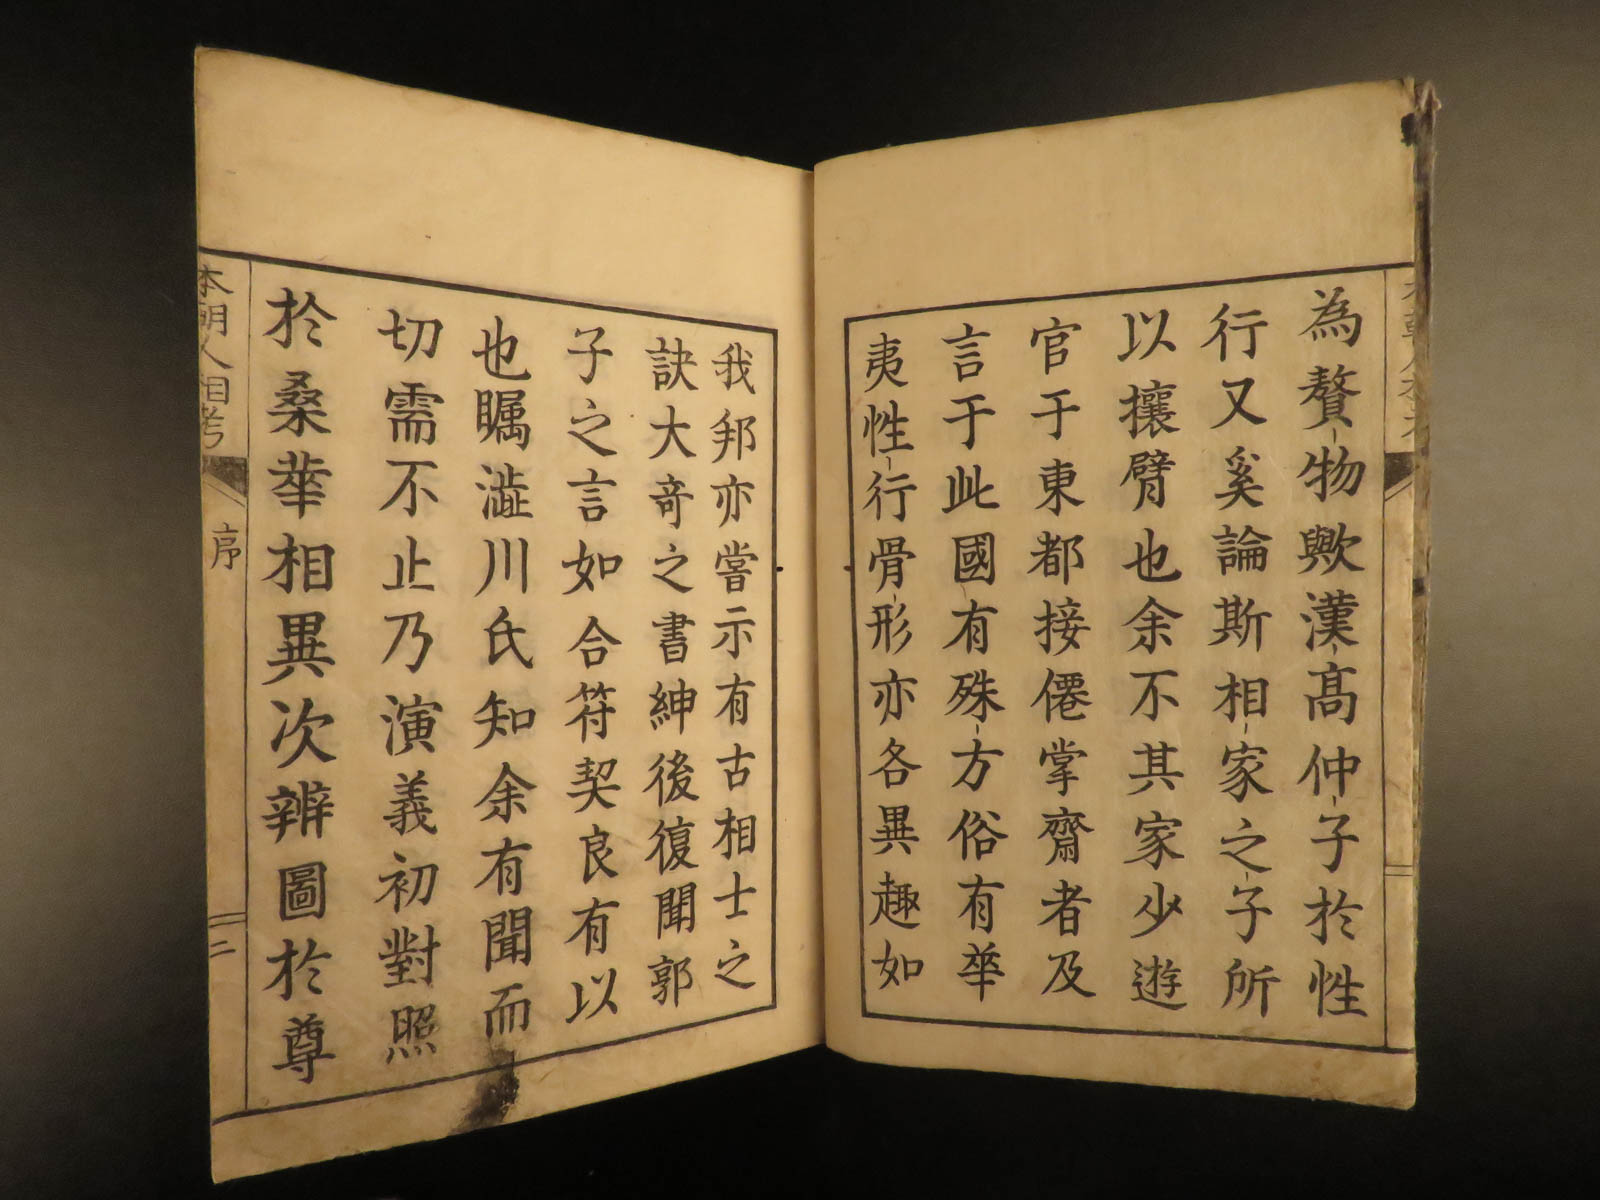 為贅物歟漢高仲子於性
行又奚論斯相家之子所
以攘臂也余不其家少遊
官于東都接僊掌齋者及
言于此國有殊方俗有華
夷性行骨形亦各異趣如
我邦亦嘗示有古相士之
訣大奇之書紳後復聞郭
子之言如合符契良有以
也矚澁川氏知余有聞而
切需不止乃演義初對照
於桑華相異次辨圖於尊
本朝人相考
序
二